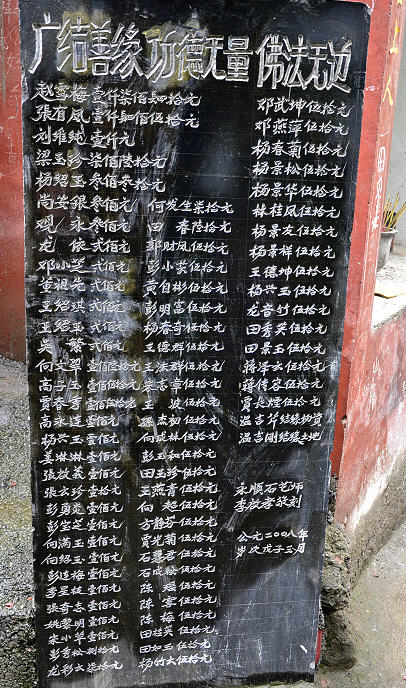 广结善缘 功德无量 佛法无边
赵雪梅壹仟柒佰肆拾元
張有凤壹仟肆佰伍拾元
刘维纯壹仟元
梁玉珍柒佰陸拾元
杨绍玉叁佰叁拾元
尚安银叁佰元
观 永叁佰元
龙 依弍佰元
邓小芝弍佰元
董祖光弍佰元
王绍琪弍佰元
王绍平弍佰元
吴 繁弍佰元
何文翠壹佰陸拾元
高子玉壹佰伍拾元
贾春秀壹佰伍拾元
高永连壹佰元
杨兴玉壹佰元
姜琳琳壹佰元
張放義壹佰元
張玄珍壹拾元
彭勇炎壹佰元
彭宝芝壹佰元
向满玉壹佰元
向绍玉壹佰元
彭连梅壹佰元
李星枝壹佰元
張奇志壹佰元
姚黎明壹佰元
宋小翠壹佰元
彭秀松捌拾元
龙彩女柒拾元
何发生柒拾元
田 春陸拾元
郭财凤伍拾元
彭小英伍拾元
黄自彬伍拾元
彭明富伍拾元
杨春奇伍拾元
王德群伍拾元
王法群伍拾元
宋志章伍拾元
王 波伍拾元
孫杰初伍拾元
向成初伍拾元
彭玉和伍拾元
田玉珍伍拾元
王燕青伍拾元
向 超伍拾元
方静芬伍拾元
贾光菊伍拾元
石慧君伍拾元
石成松伍拾元
陈 瑶伍拾元
陈 军伍拾元
陈 梅伍拾元
田桂英伍拾元
田如玉伍拾元
杨竹女伍拾元
邓武坤伍拾元
邓燕萍伍拾元
杨春菊伍拾元
杨景松伍拾元
杨景华伍拾元
林桂凤伍拾元
杨景友伍拾元
杨景祥伍拾元
王德坤伍拾元
杨兴玉伍拾元
龙音竹伍拾元
田秀英伍拾元
田景玉伍拾元
蒋泽云伍拾元
蒋传容伍拾元
贾长煌伍拾元
温吉芹结缘物资
温吉刚结缘土地
永顺石艺师
李放孝敬刻
公元二〇〇八年
岁次戊子三月